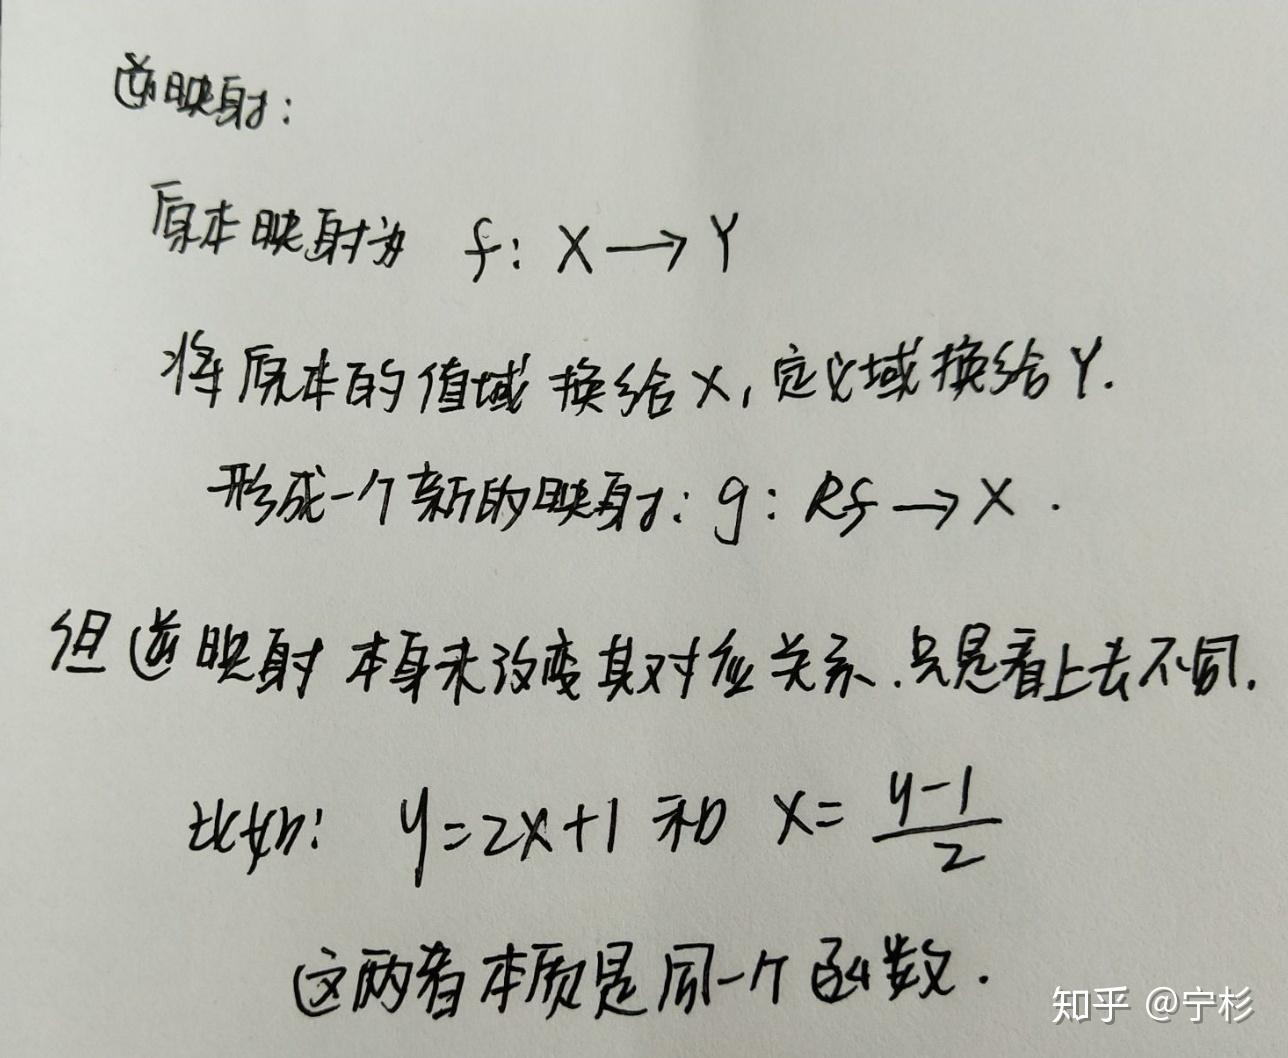 逆映射:
原本映射为 f: X → Y
将原本的值域换给X, 定义域换给Y.
形成一个新的映射: g: Rf → X .
但逆映射本身未改变其对应关系.只是看上去不同.
比如: y=2x+1 和 x= \frac{y-1}{2}
这两者本质是同一个函数.
知乎 @宁杉